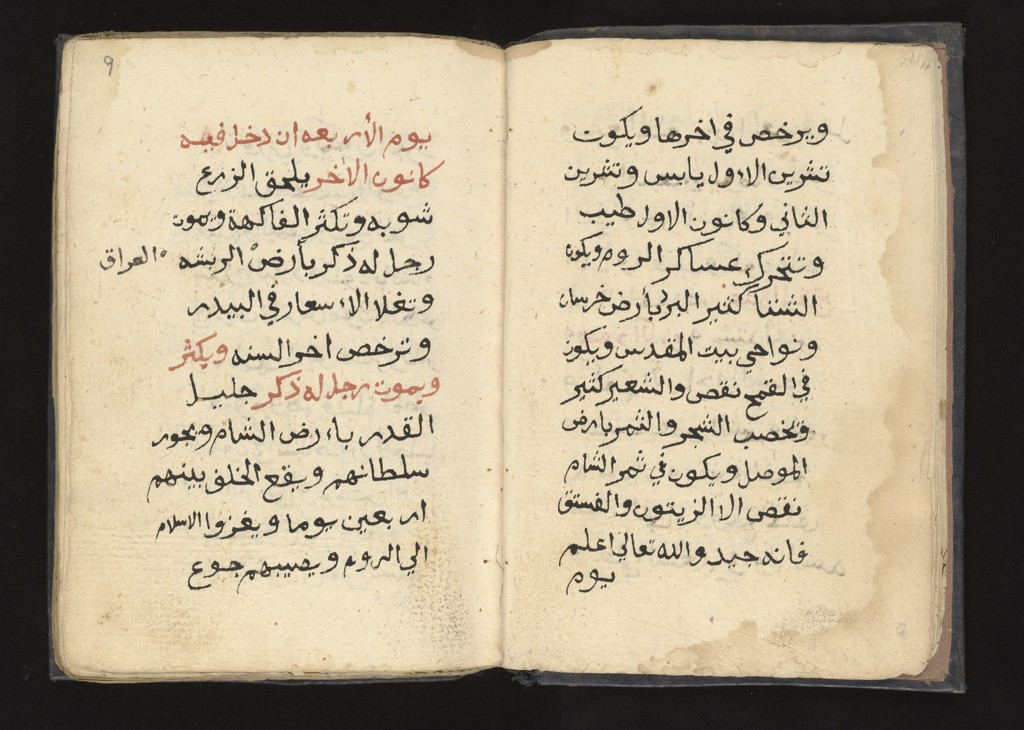 ويرخص في اخرها ويكون
تشرين الاول يابس وتشرين
الثاني وكانون الاول طيب
وتتحرك عساكر الروم ويكون
الشتا كثير البرد بأرض خرسان
ونواحي بيت المقدس ويكون
في القمح نقص والشعير كثير
وتخصب الشجر والثمر بارض
الموصل ويكون في ثمر الشام
نقص الا الزيتون والفستق
فانه جيد والله تعالى اعلم
يوم
9
يوم الأربعه ان دخل فيه
كانون الاخر يلحق الزرع
شوبه وتكثر الفاكهة ويموت
رجل له ذكر بأرض العراق
وتغلا الاسعار في البيدر
وترخص اخر السنه ويكثر
ويموت رجل له ذكر جليل
القدر بارض الشام ويجور
سلطانهم ويقع الخلف بينهم
اربعين يوما ويغزوا الاسلام
الي الروم ويصيبهم جوع